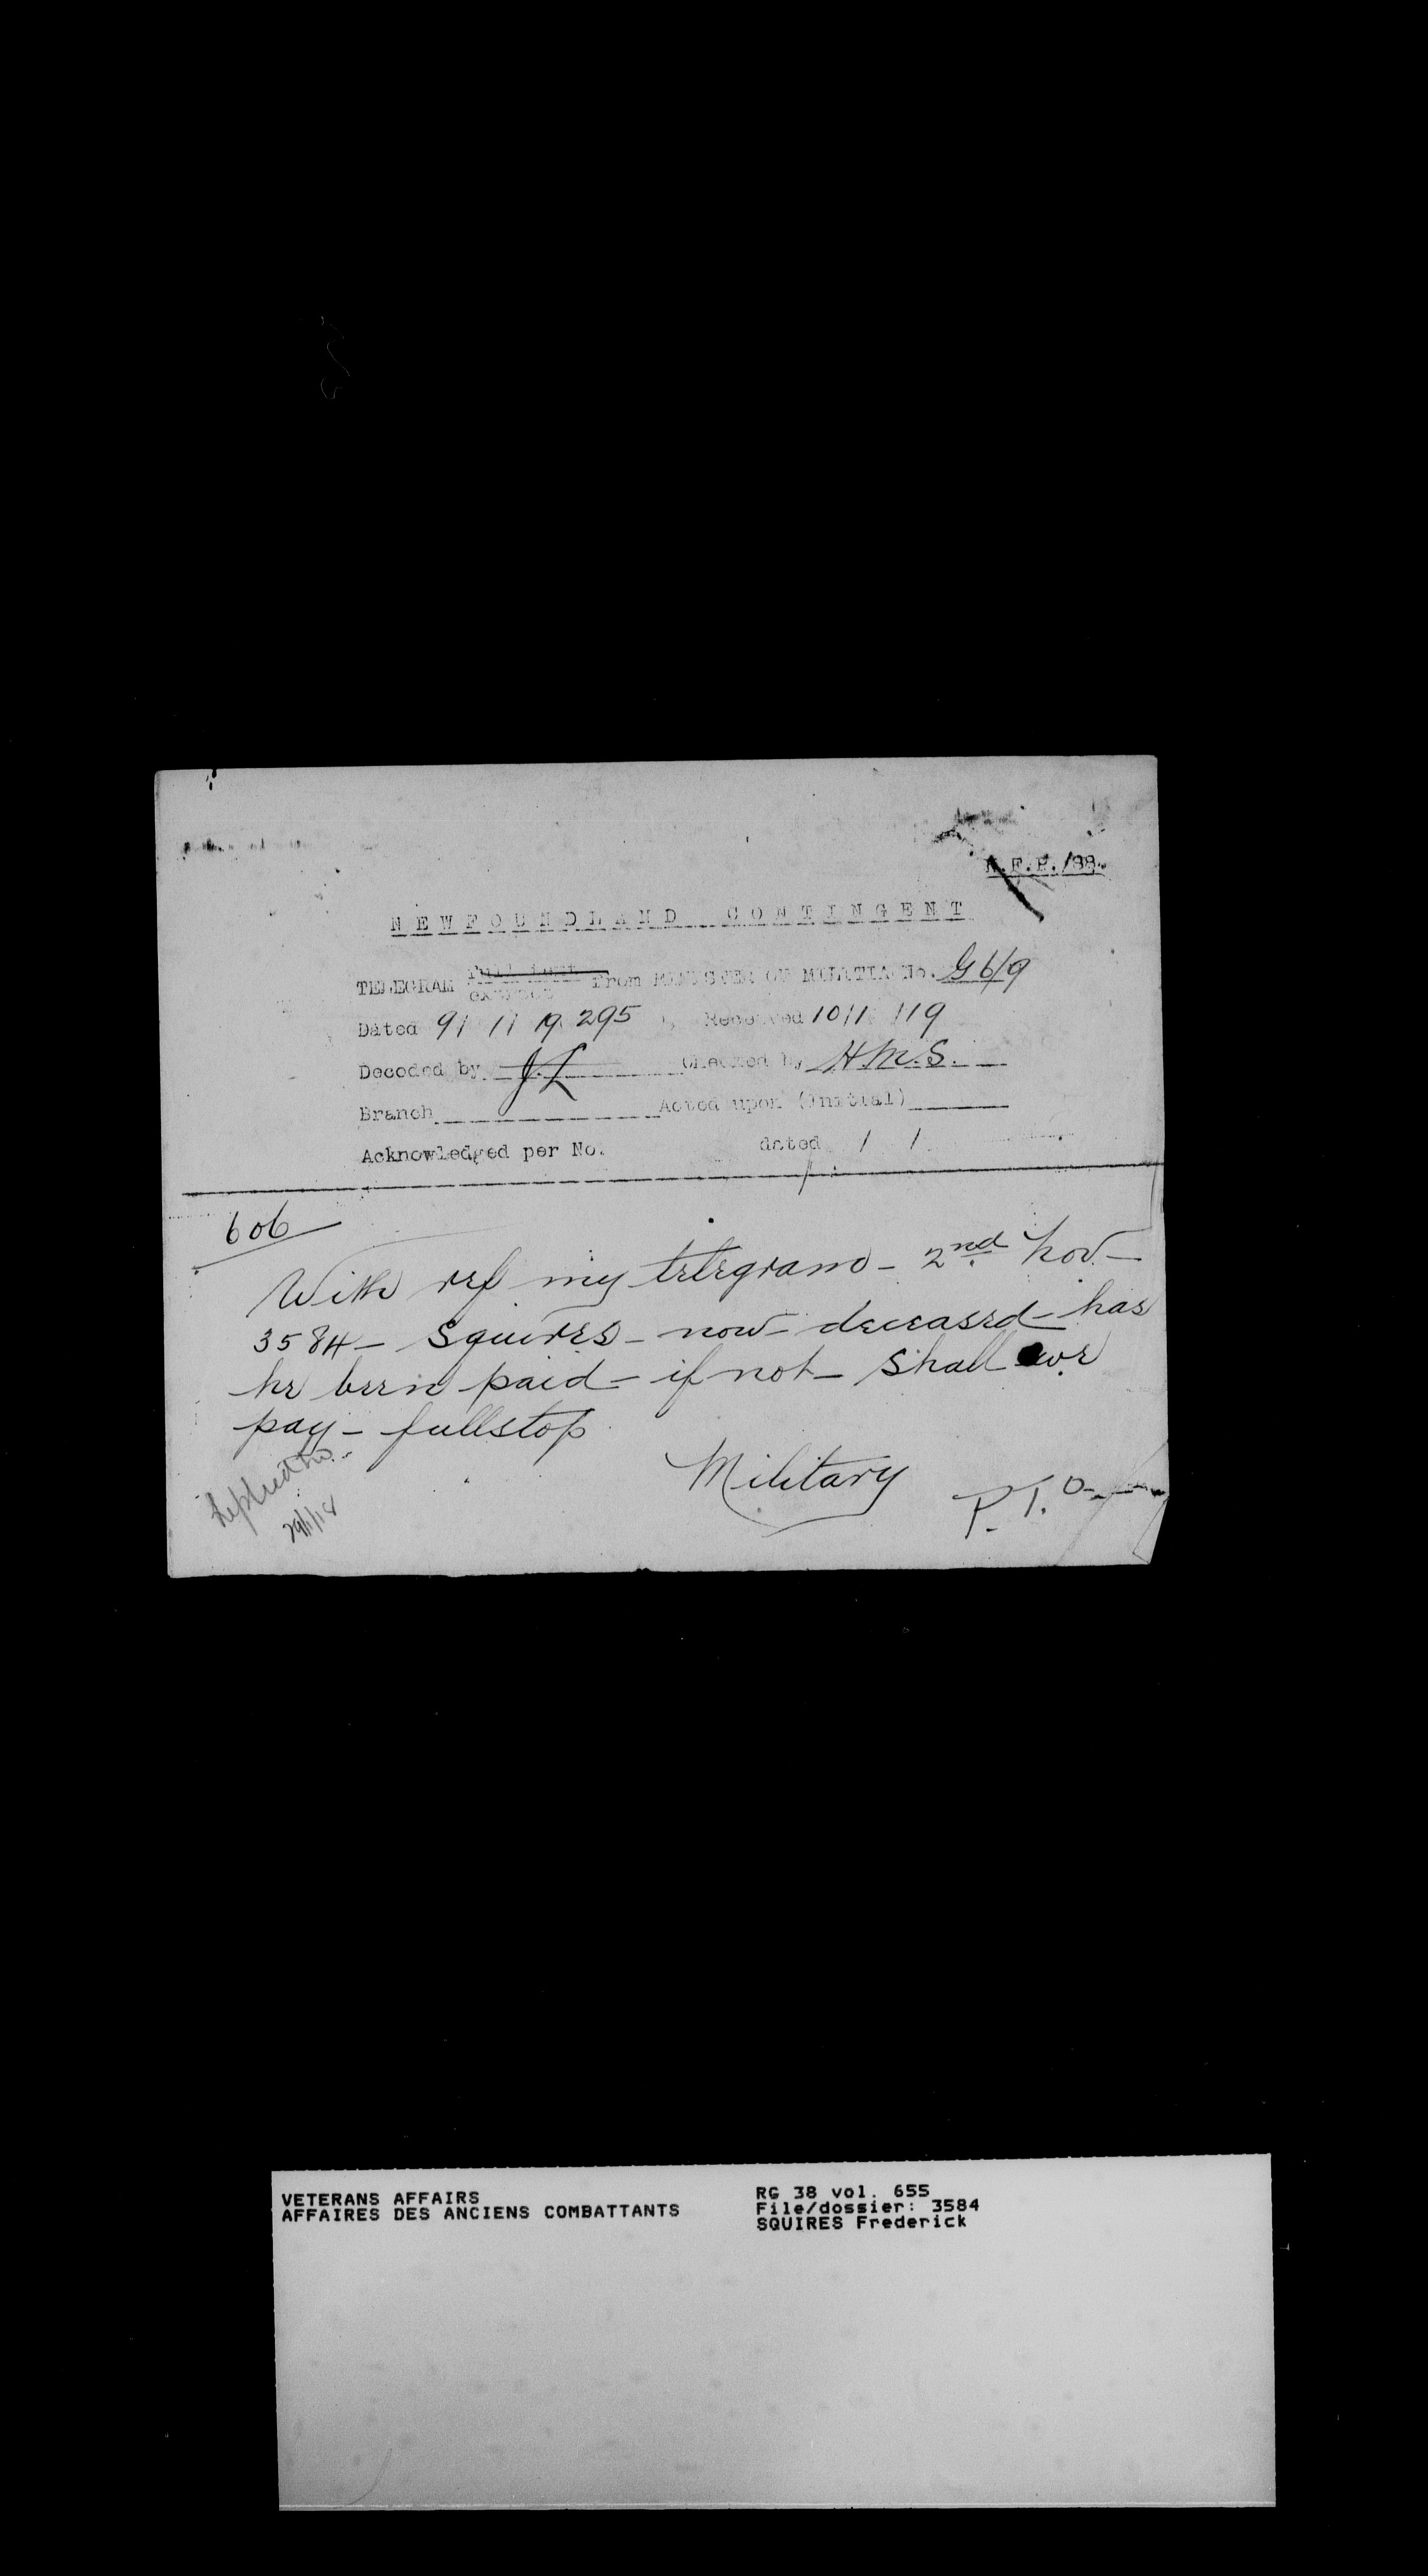 N.F.P./88.
NEWFOUNDLAND CONTINGENT
TELEGRAM full text extract from MINISTER OF MILITIA No. G 6/9
Dated 9/ 11 19 295 , Received 10/1 /19
Decoded by J.L Checked by H.M.S.
Branch Acted upon (Initial)
Acknowledged per No. dated / /
606
With ref my telegram - 2nd Nov. -
3584 - Squires - now - deceased - has
he been paid - if not - shall we
pay - fullstop
Military
P.T.O.
Replied to
29/1/18
VETERANS AFFAIRS
AFFAIRES DES ANCIENS COMBATTANTS
RG 38 vol. 655
File/dossier: 3584
SQUIRES Frederick